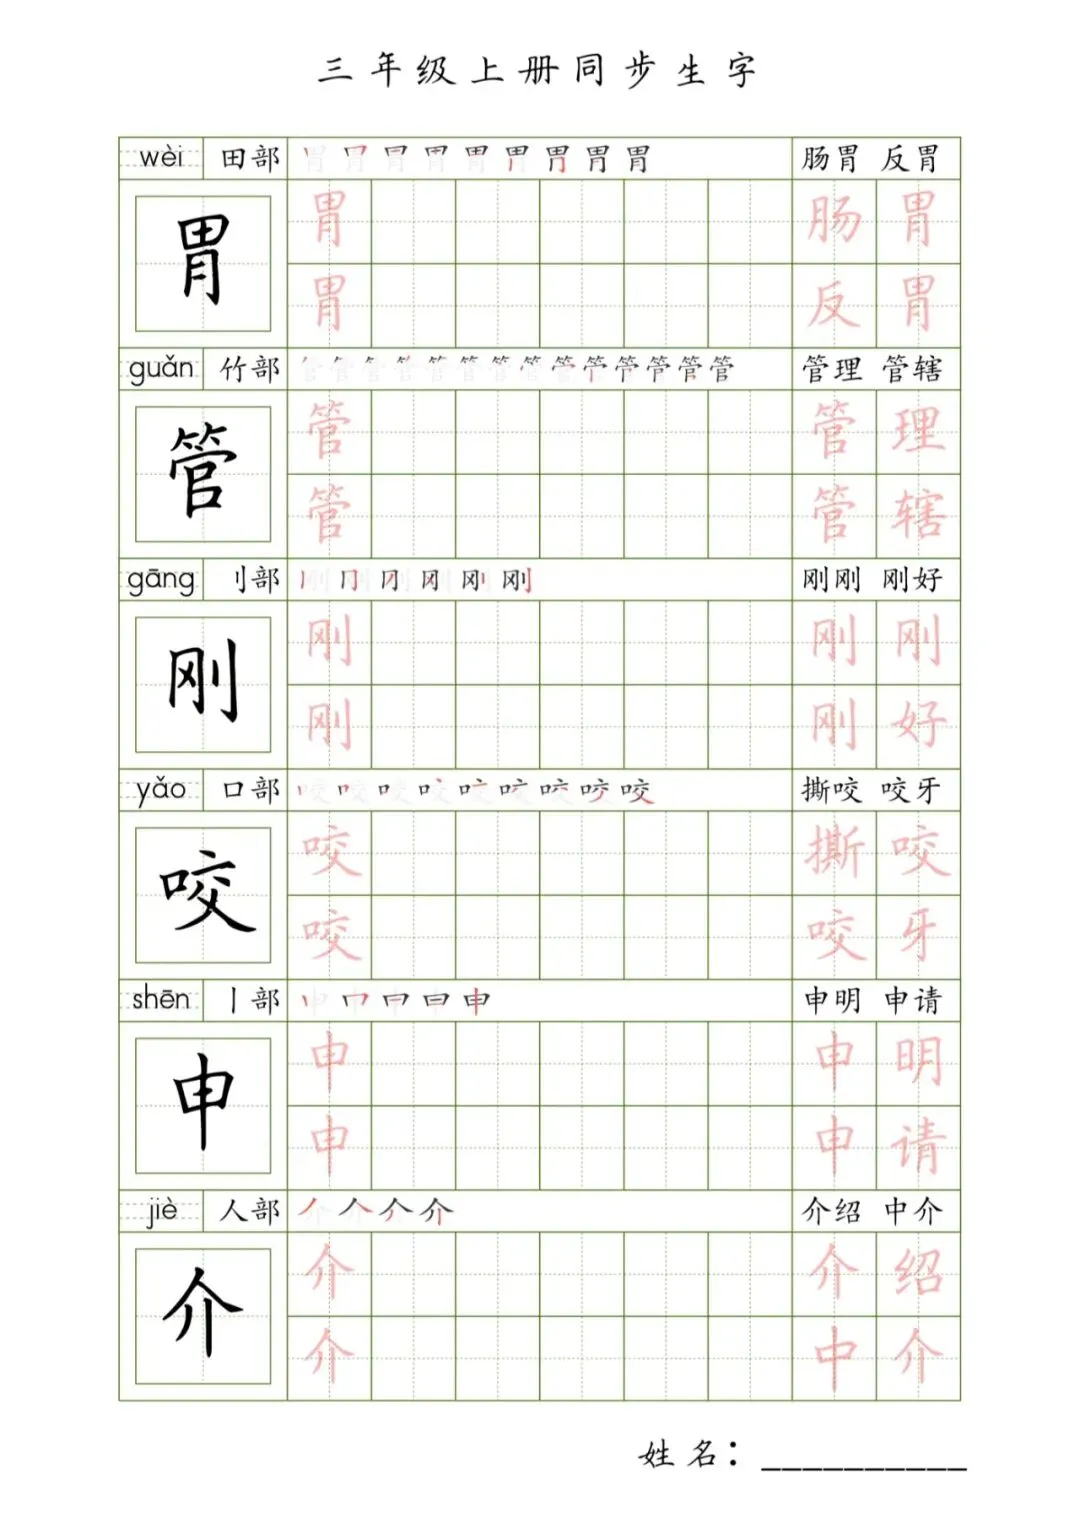 三年级上册同步生字
wèi 田部 胃胃胃胃胃胃胃胃胃 肠胃 反胃
胃 胃 肠胃
胃 反胃
guǎn 竹部 管管管管管管管管管管管管管管 管理 管辖
管 管 管理
管 管辖
gāng 刂部 刚刚刚刚刚刚 刚刚 刚好
刚 刚 刚刚
刚 刚好
yǎo 口部 咬咬咬咬咬咬咬咬咬 撕咬 咬牙
咬 咬 撕咬
咬 咬牙
shēn 丨部 申申申申申 申明 申请
申 申 申明
申 申请
jiè 人部 介介介介 介绍 中介
介 介 介绍
介 中介
姓名：__________